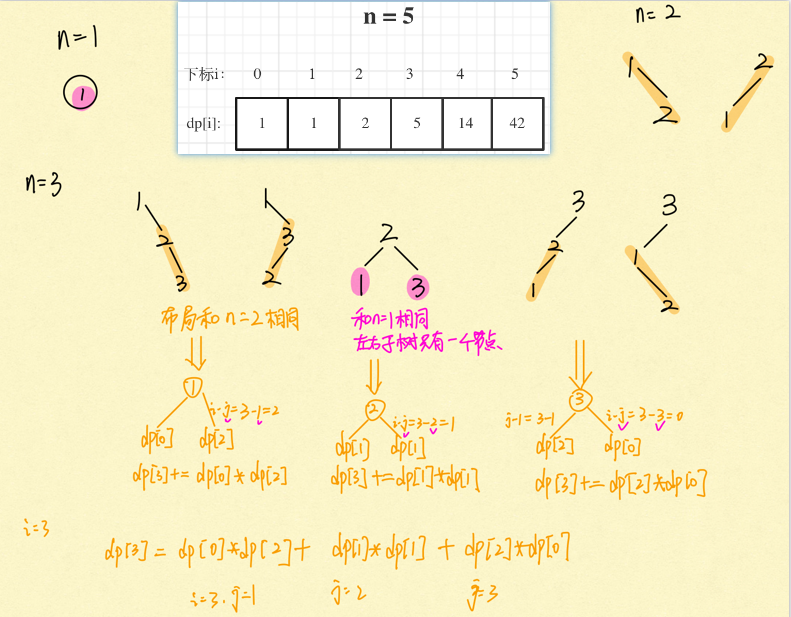 n=1
n = 5
n=2
1
下标i: 0 1 2 3 4 5
dp[i]: 1 1 2 5 14 42
1 2
2 1
n=3
1 2 3
1 3 2
2 1 3
3 2 1
3 1 2
布局和n=2相同
和n=1相同
左右子树只有一个节点
1
i-j=3-1=2
dp[0] dp[2]
dp[3]+= dp[0]*dp[2]
2
i-j=3-2=1
dp[1] dp[1]
dp[3]+=dp[1]*dp[1]
3
j-1=3-1
i-j=3-3=0
dp[2] dp[0]
dp[3]+=dp[2]*dp[0]
i=3
dp[3] = dp[0]*dp[2]+ dp[1]*dp[1] + dp[2]*dp[0]
i=3.j=1 j=2 j=3